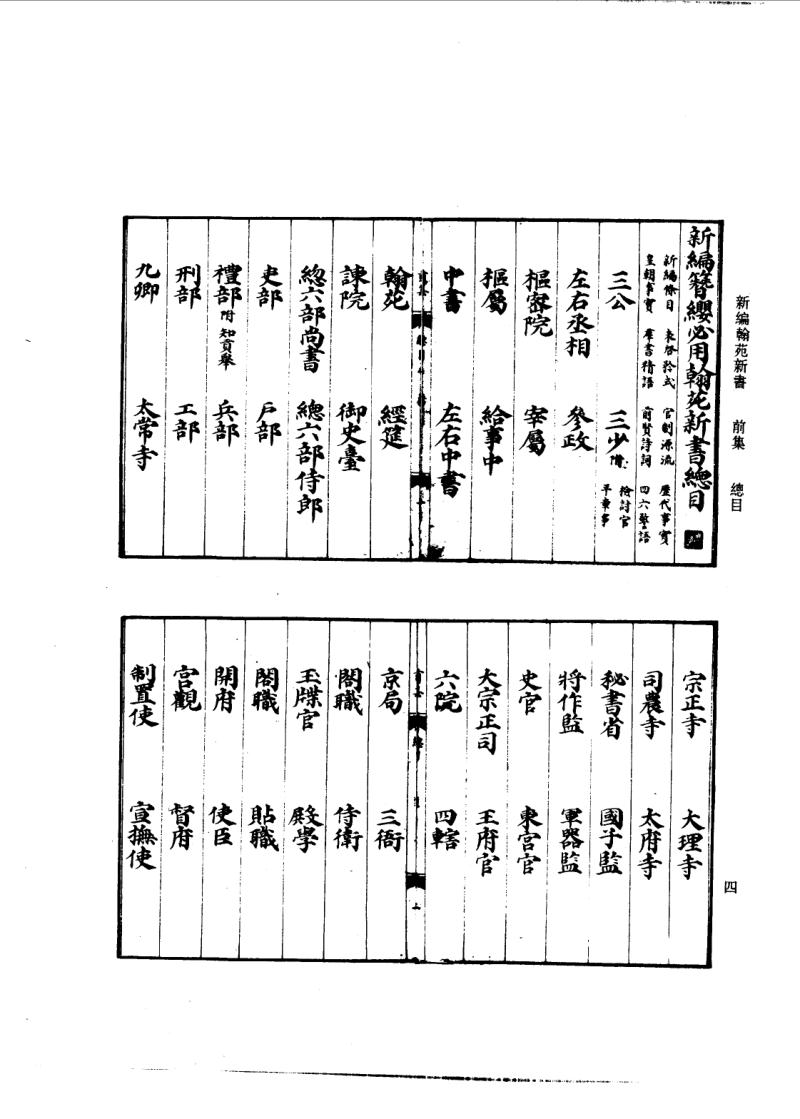 新編翰苑新書　前集　總目
新編簪纓必用翰苑新書總目
新編條目　表啓矜式　官制源流　歷代事實
皇朝事實　羣書精語　前賢詩詞　四六警語
三公　三少附　檢討官　平章事
左右丞相　參政
樞密院　宰屬
樞屬　給事中
中書　左右中書
翰苑　經筵
諫院　御史臺
緫六部尚書　總六部侍郎
吏部　戶部
禮部附知貢舉　兵部
刑部　工部
九卿　太常寺
宗正寺　大理寺
司農寺　太府寺
秘書省　國子監
將作監　軍器監
史官　東宮官
大宗正司　王府官
六院　四轄
京局　三衙
閤職　侍衛
玉牒官　殿學
閣職　貼職
開府　使臣
宮觀　督府
制置使　宣撫使
四